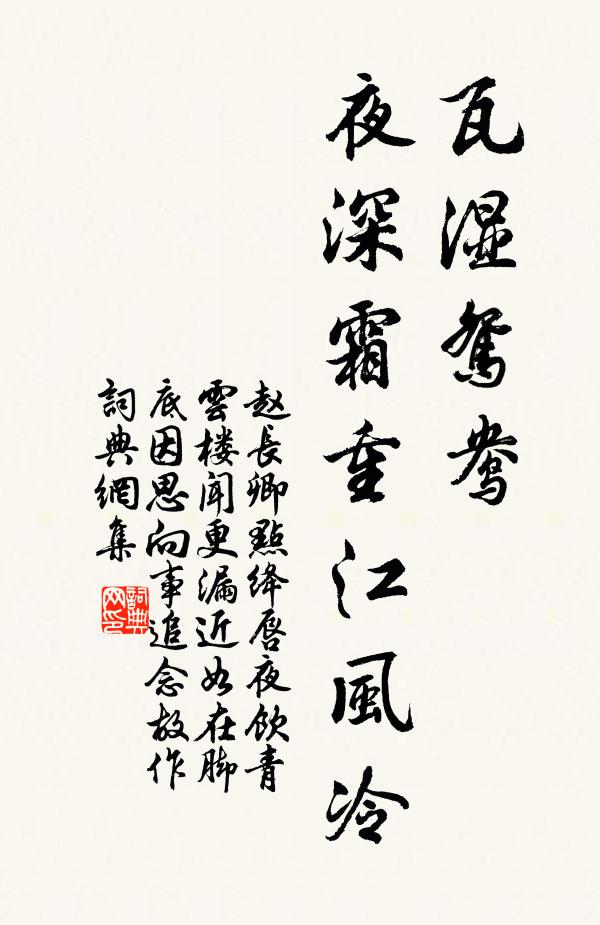 瓦湿鸳鸯
夜深霜重江風冷
赵長卿點绛唇夜飲青
雲楼闻更漏近如在脚
底因思向事追念故作
詞典網集
詞典
网印